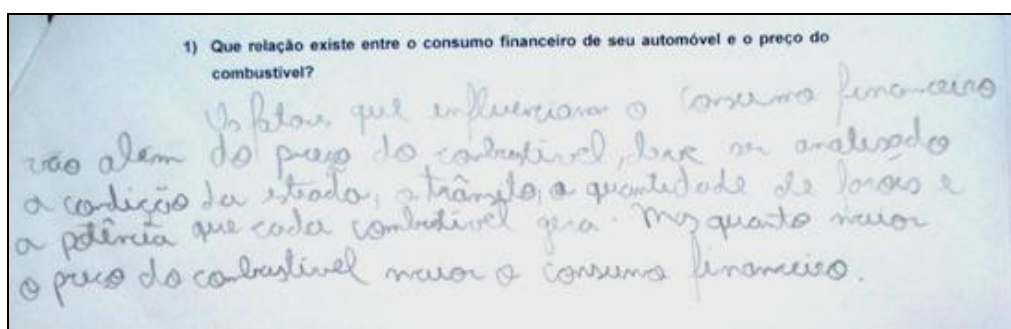 1) Que relação existe entre o consumo financeiro de seu automóvel e o preço do
combustível?
Os fatores que influenciam o consumo financeiro
vão alem do preço do combustível, ser analisado
a condição da estrada, o trânsito, a quantidade de e
a potência que cada combustível gera. Mas quanto maior
o preço do combustível maior o consumo financeiro.